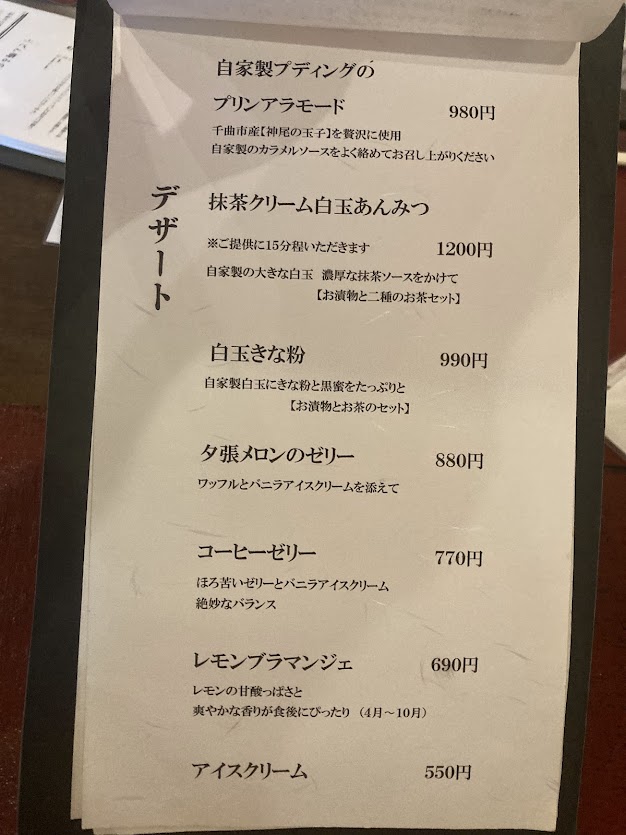 デザート
自家製プディングの
プリンアラモード 980円
千曲市産【神尾の玉子】を贅沢に使用
自家製のカラメルソースをよく絡めてお召し上がりください
抹茶クリーム白玉あんみつ
※ご提供に15分程いただきます 1200円
自家製の大きな白玉 濃厚な抹茶ソースをかけて
【お漬物と二種のお茶セット】
白玉きな粉 990円
自家製白玉にきな粉と黒蜜をたっぷりと
【お漬物とお茶のセット】
夕張メロンのゼリー 880円
ワッフルとバニラアイスクリームを添えて
コーヒーゼリー 770円
ほろ苦いゼリーとバニラアイスクリーム
絶妙なバランス
レモンブラマンジェ 690円
レモンの甘酸っぱさと
爽やかな香りが食後にぴったり（4月～10月）
アイスクリーム 550円